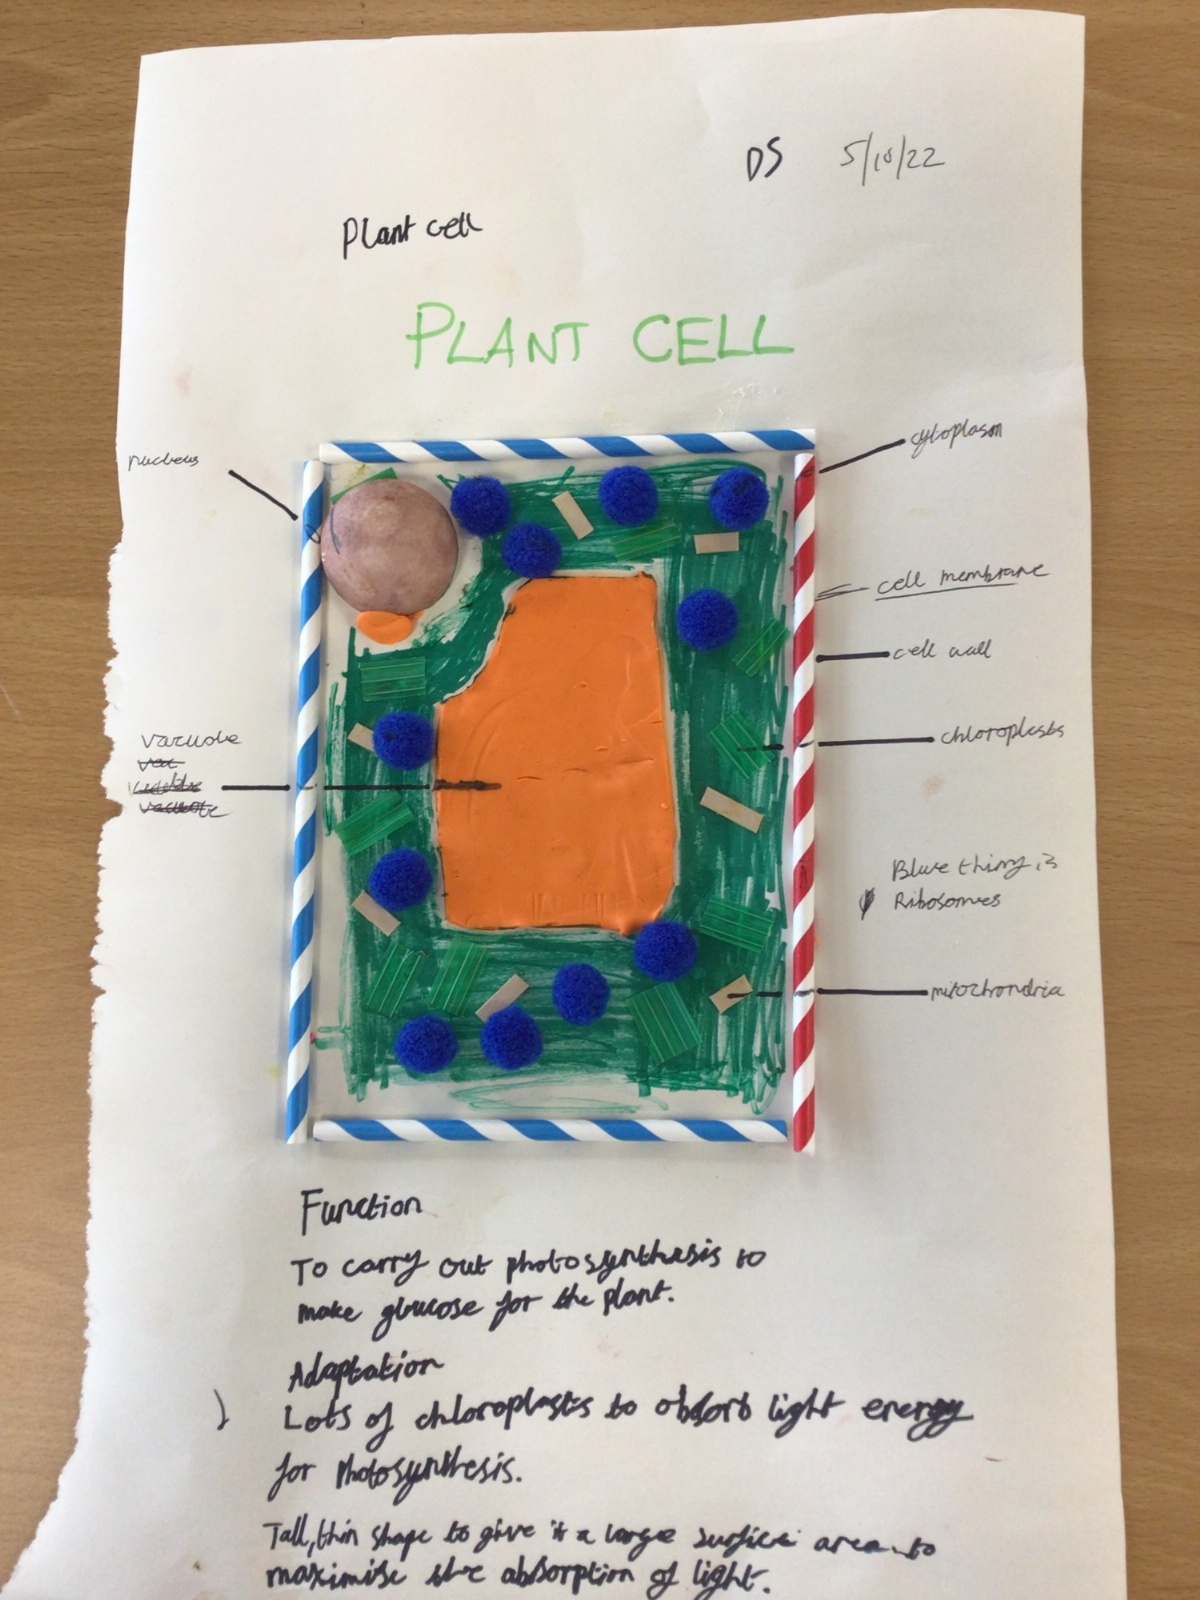 DS 5/10/22
Plant cell
PLANT CELL
nucleus
cytoplasm
cell membrane
cell wall
chloroplasts
vacuole
Blue thing is
Ribosomes
mitochondria
Function
To carry out photosynthesis to
make glucose for the plant.
Adaptation
Lots of chloroplasts to absorb light energy
for photosynthesis.
Tall, thin shape to give it a large surface area to
maximise the absorption of light.